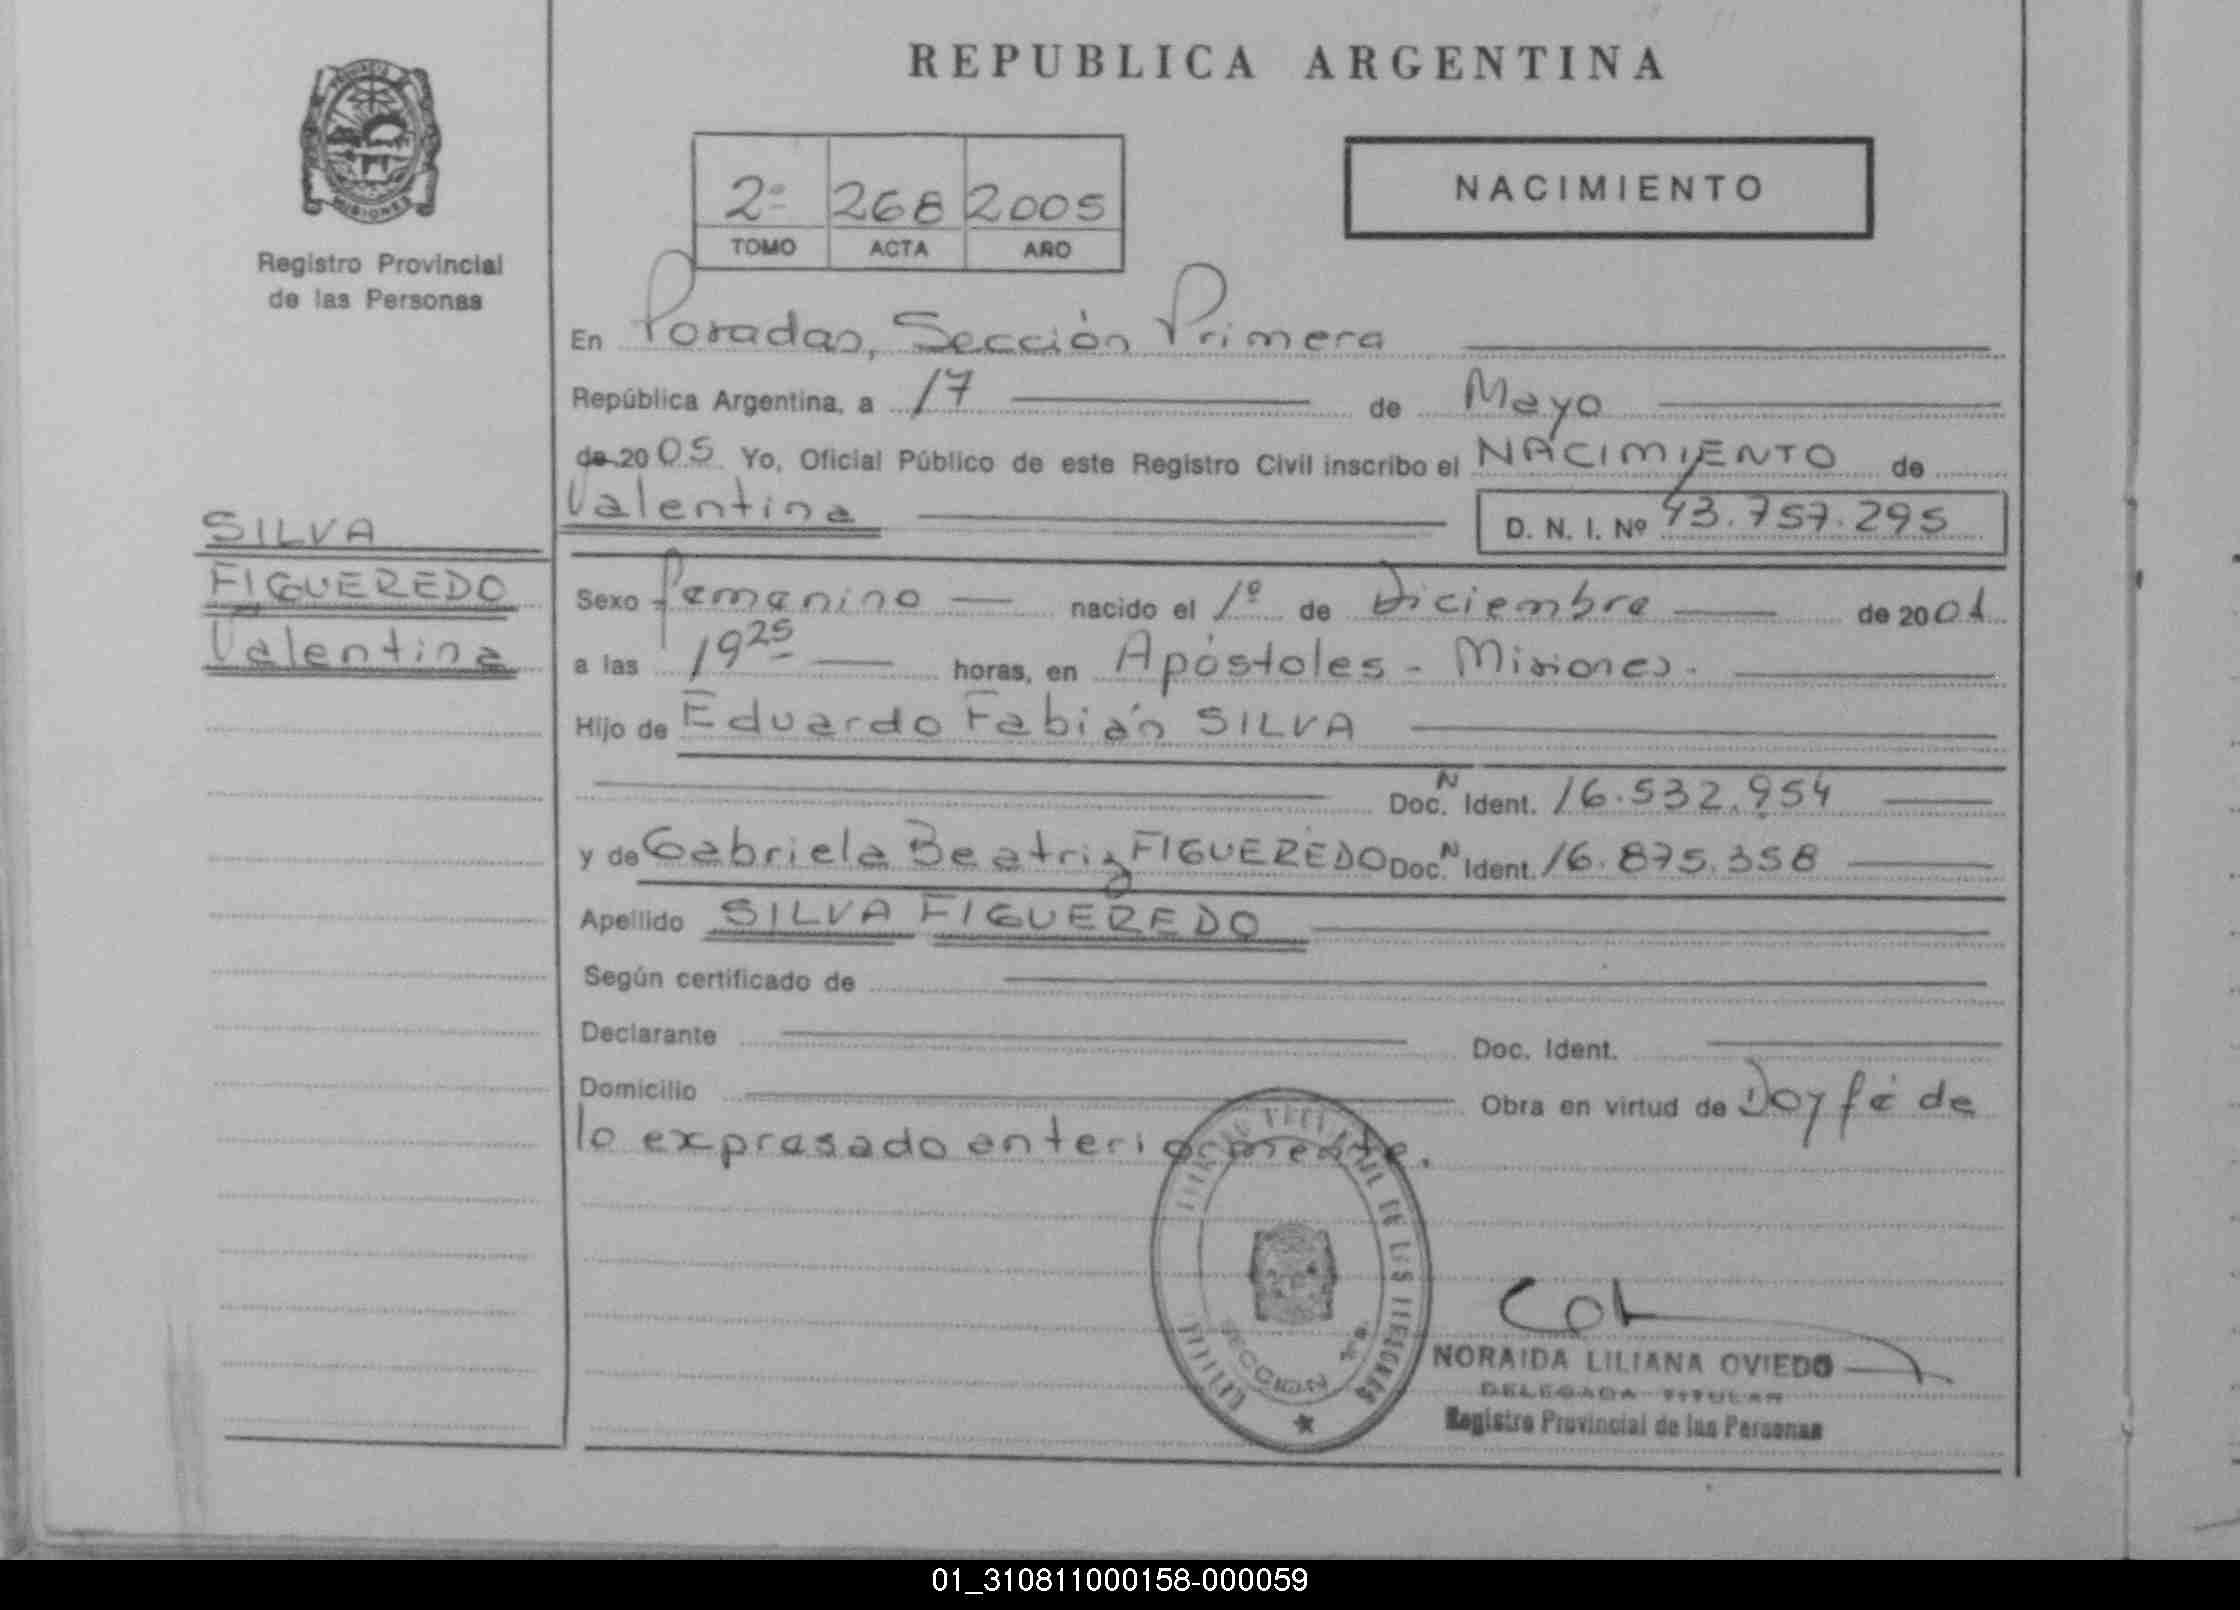 REPUBLICA ARGENTINA
PROVINCIA
MISIONES
Registro Provincial
de las Personas
2º 268 2005
TOMO ACTA AÑO
NACIMIENTO
En Posadas, Sección Primera
República Argentina, a 17 de Mayo
de 2005 Yo, Oficial Público de este Registro Civil inscribo el NACIMIENTO de
Valentina D. N. I. Nº 43.757.295
SILVA
FIGUEREDO
Valentina
Sexo Femenino nacido el 1º de Diciembre de 2001
a las 19 25 horas, en Apóstoles - Misiones.
Hijo de Eduardo Fabián SILVA
Doc. N Ident. 16.532.954
y de Gabriela Beatriz FIGUEREDO Doc. N Ident. 16.875.358
Apellido SILVA FIGUEREDO
Según certificado de
Declarante Doc. Ident.
Domicilio Obra en virtud de Doy fé de
lo expresado anteriormente.
DE LAS PERSONAS
SECCION 1ra.
NORAIDA LILIANA OVIEDO
DELEGADA TITULAR
Registro Provincial de las Personas
01_310811000158-000059